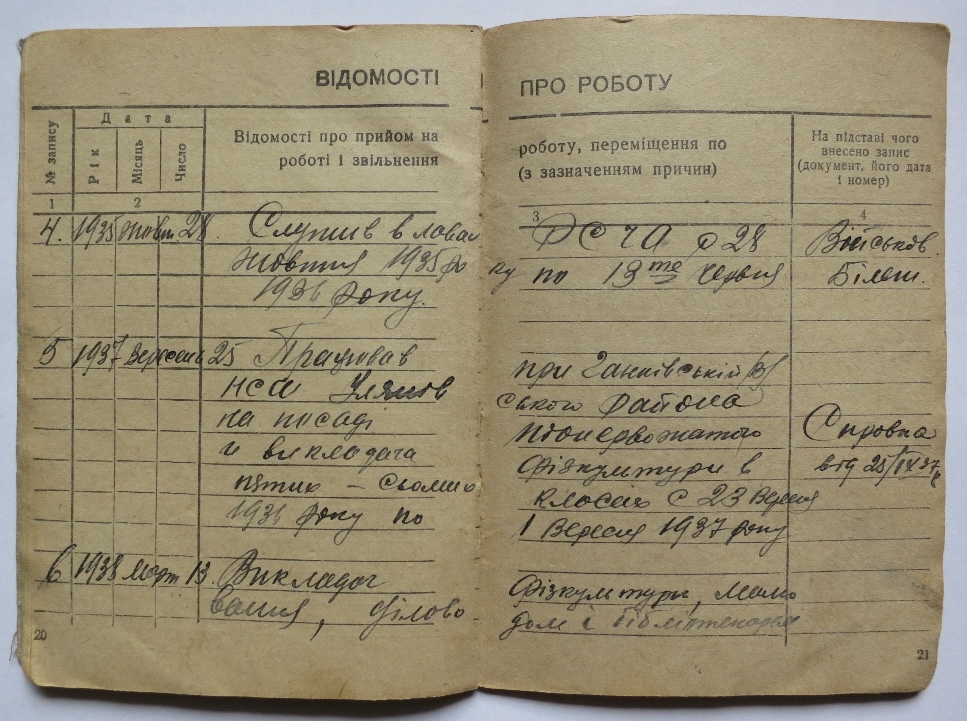 ВІДОМОСТІ
ПРО РОБОТУ
№ запису
Дата
Рік
Місяць
Число
Відомості про прийом на
роботі і звільнення
роботу, переміщення по
(з зазначенням причин)
На підставі чого
внесено запис
(документ, його дата
і номер)
1
2
3
4
4. 1935 жовт. 28. Служив в лавах
РСЧА з 28 Військов.
жовтня 1935 ро
ку по 13те червня Білет.
1936 року.
5 1937 Вересень 25 Працював
при Ганнівській
НСШ Улянов
ського района
на посаді
піонервожатого Справка
и викладача
фізкультури в від 25/IX 37
пятих – сьомих
класах с 23 Вересня
1936 року по
1 Вересня 1937 року
6 1938 Март 13. Викладач
фізкультури, малю
вання, діловод
дом і бібліотекарем
20
21